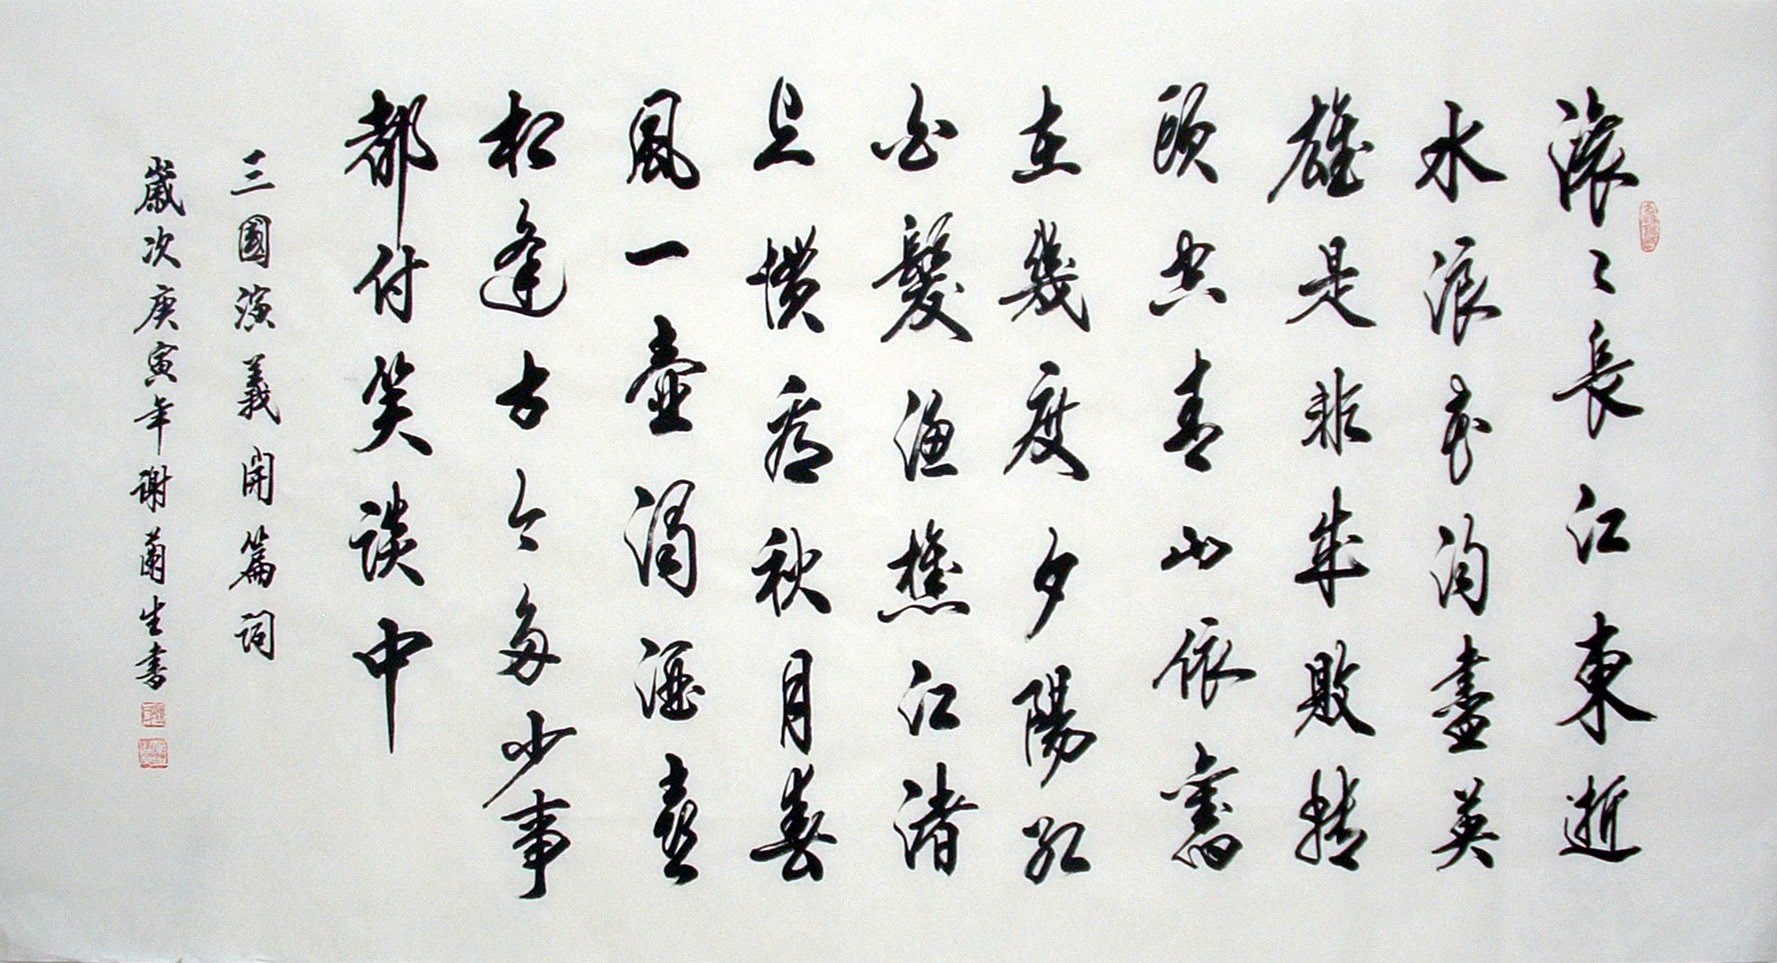 滾〻長江東逝
水浪花淘盡英
雄是非成敗轉
頭空青山依舊
在幾度夕陽紅
白髮漁樵江渚
上慣看秋月春
風一壺濁酒喜
相逢古今多少事
都付笑談中
三國演義開篇詞
歲次庚寅年謝蘭生書